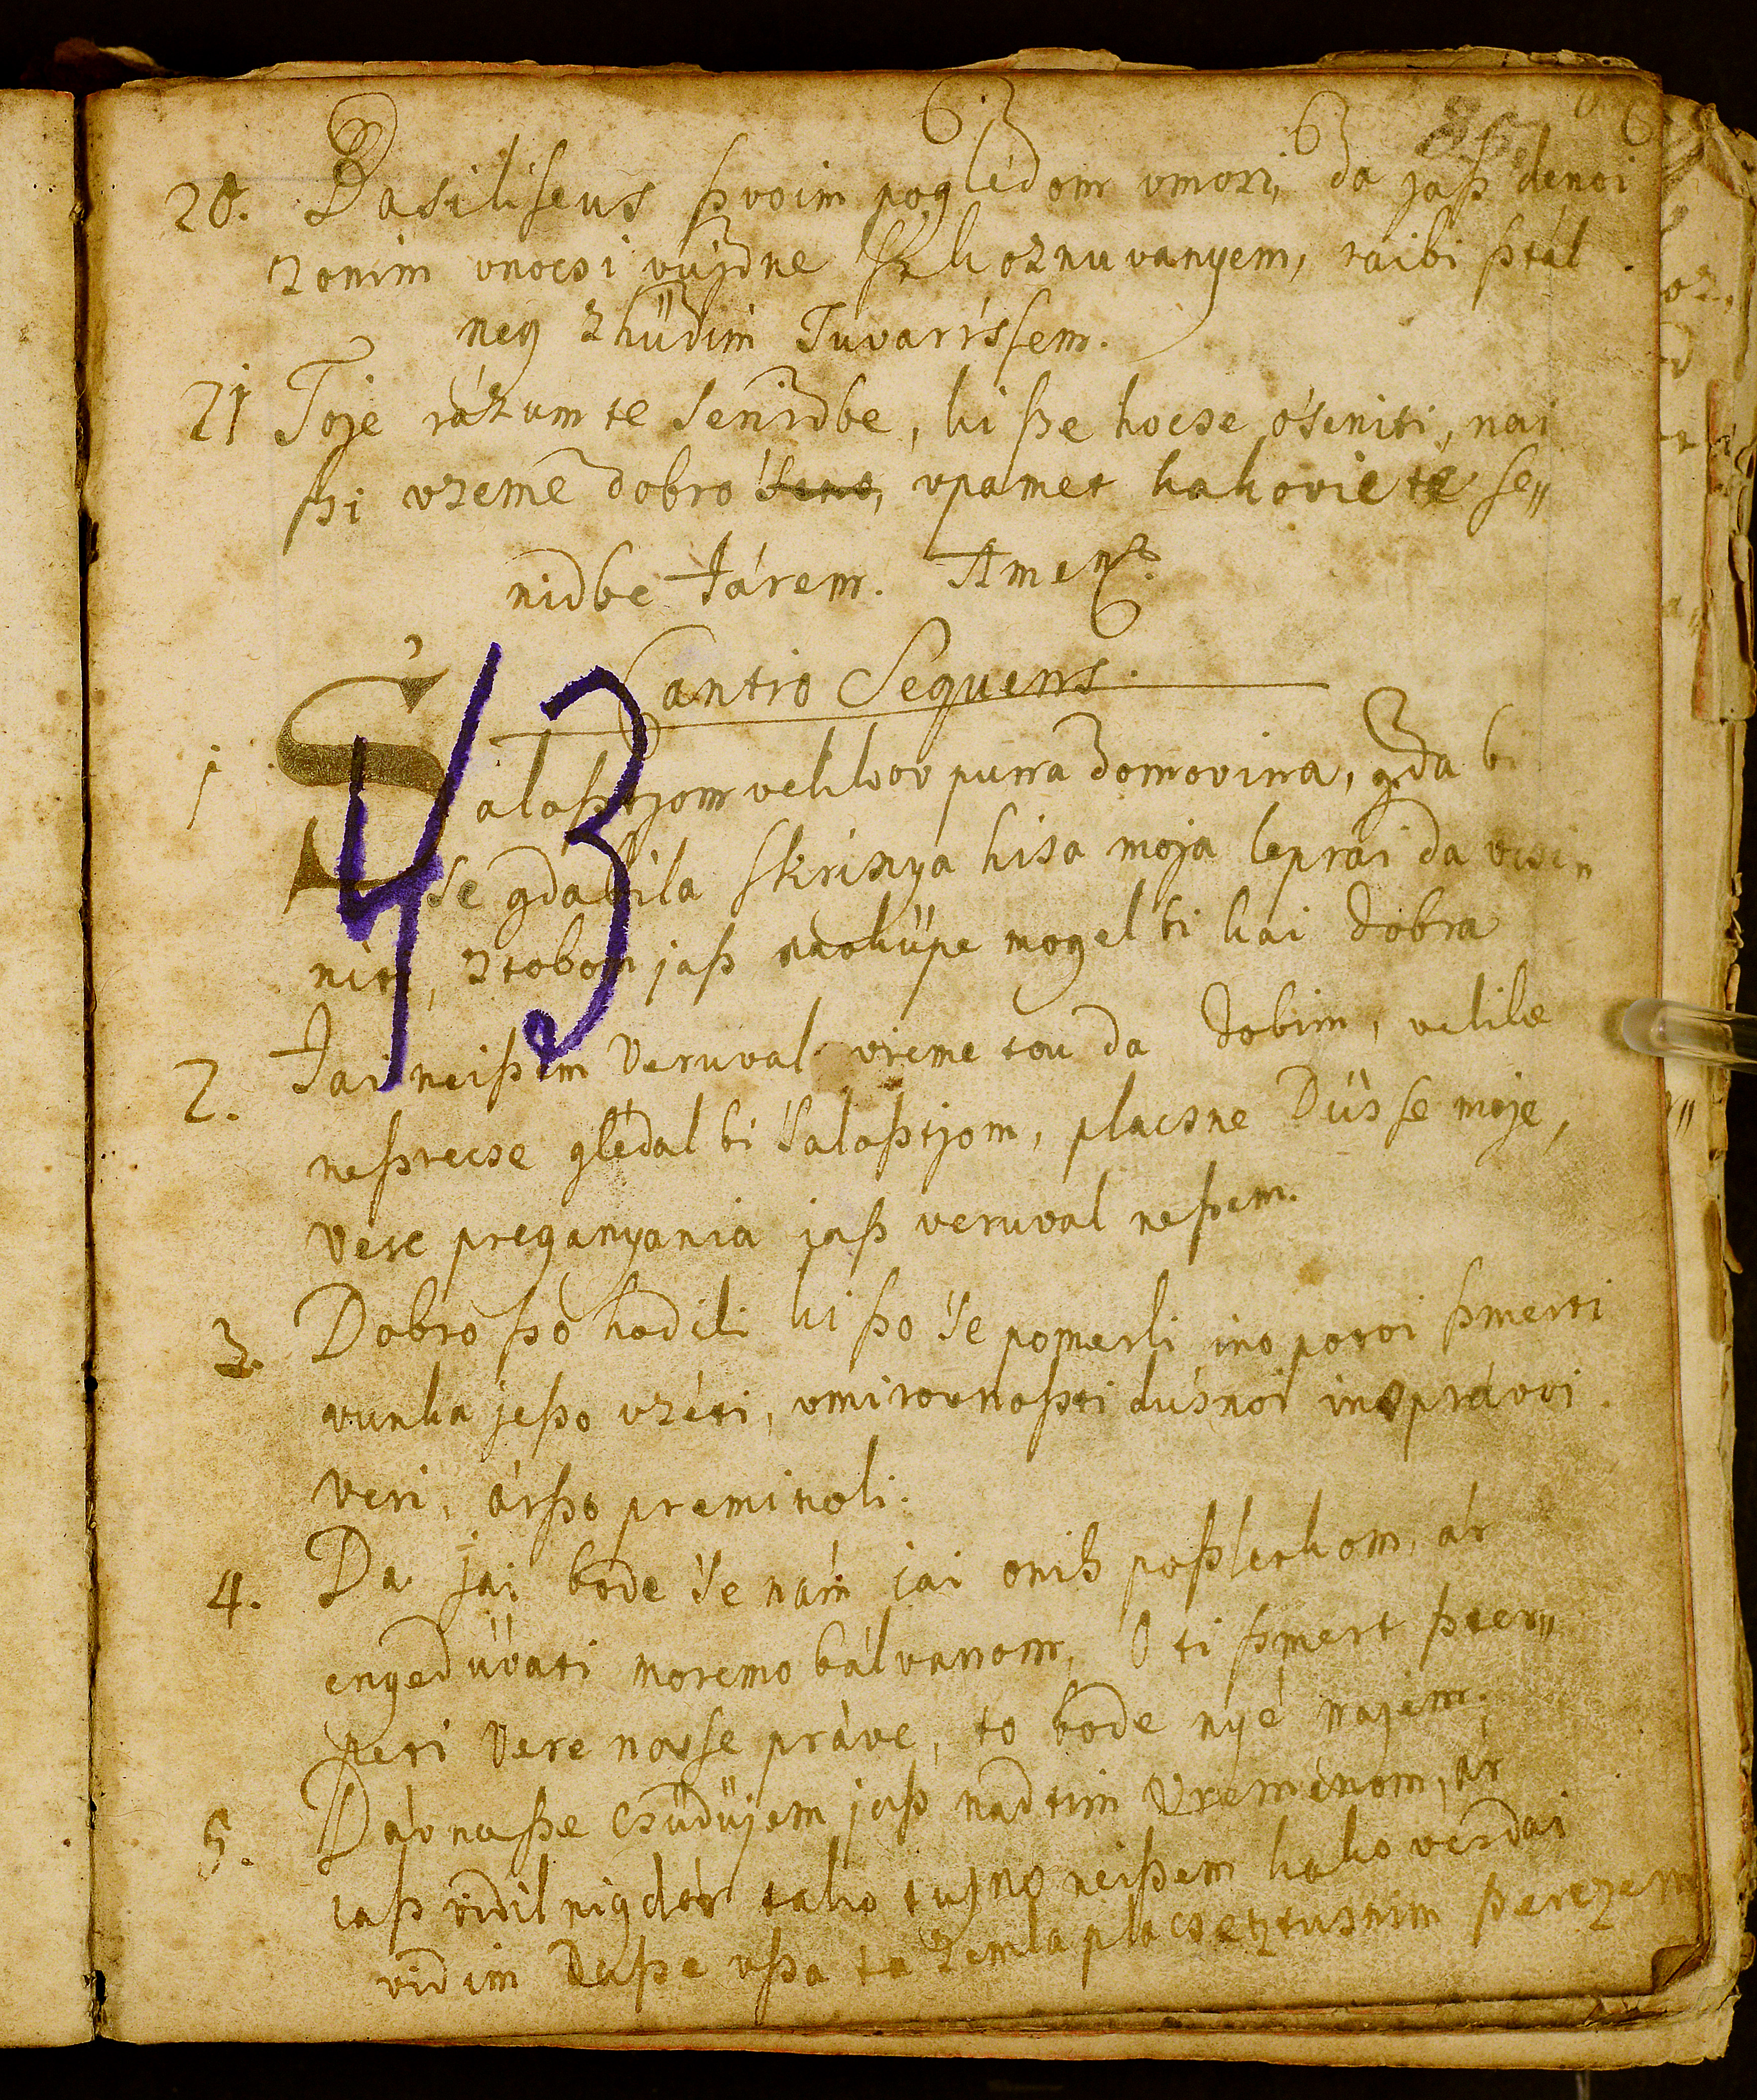 63 63
20. Basiliseus ßvoim pogledom vmori, da jaß denoi
zonim vnocsi vujdne ßkhoznuvanyem, raibi ßtál
neg zhüdim Tuvarissem.
21 Toje rázum te senidbe, ki ße hocse oseniti, nai
ßi vzeme dobro vpamet kakovie te se„
nidbe Járem. Amen.
Cantio Sequens.
1 Salaßtjom velikov puna domovina, gda bi
se gdabila skrisnya hisa moja leprai da vcsi„
niti, ztobom jaß vkohüpe mogel bi kai dobra
43
2. Jai neißem Veruval vreme tou da dobim, velike
neßrecse glédal bi Salaßtjom, placsne Düsse moje,
vere preganyania jaß veruval neßem.
3. Dobro ßo hodili ki ßo se pomerli, ino potoi ßmerti
vunka jeßo vzéti, vmirovnoßti dusnoi ino právoi
veri, árßo preminoli.
4. Da jai bode se nám jai onih poßlerkom, ár
engedüvati moremo bálvanom, O ti ßmert ßter„
peti Vere nosse práve, to bode nyé najem.
5. Dáv naße csüdüjem jaß nad tim Vremenom, ár
jaß vidil nigdár tako tusno neißem kako vezdai
vidim Daße vßa ta zemla placse ztusnim ßerczem